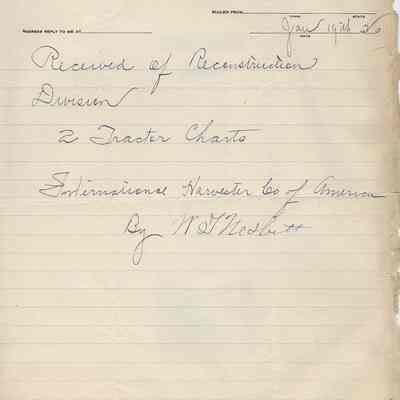 MAILED FROM
TOWN STATE
Jan 19th 20
ADDRESS REPLY TO ME AT
DATE
Received of Reconstruction
Division
2 Tractor Charts
International Harvester Co of America
By W D Nesbitt